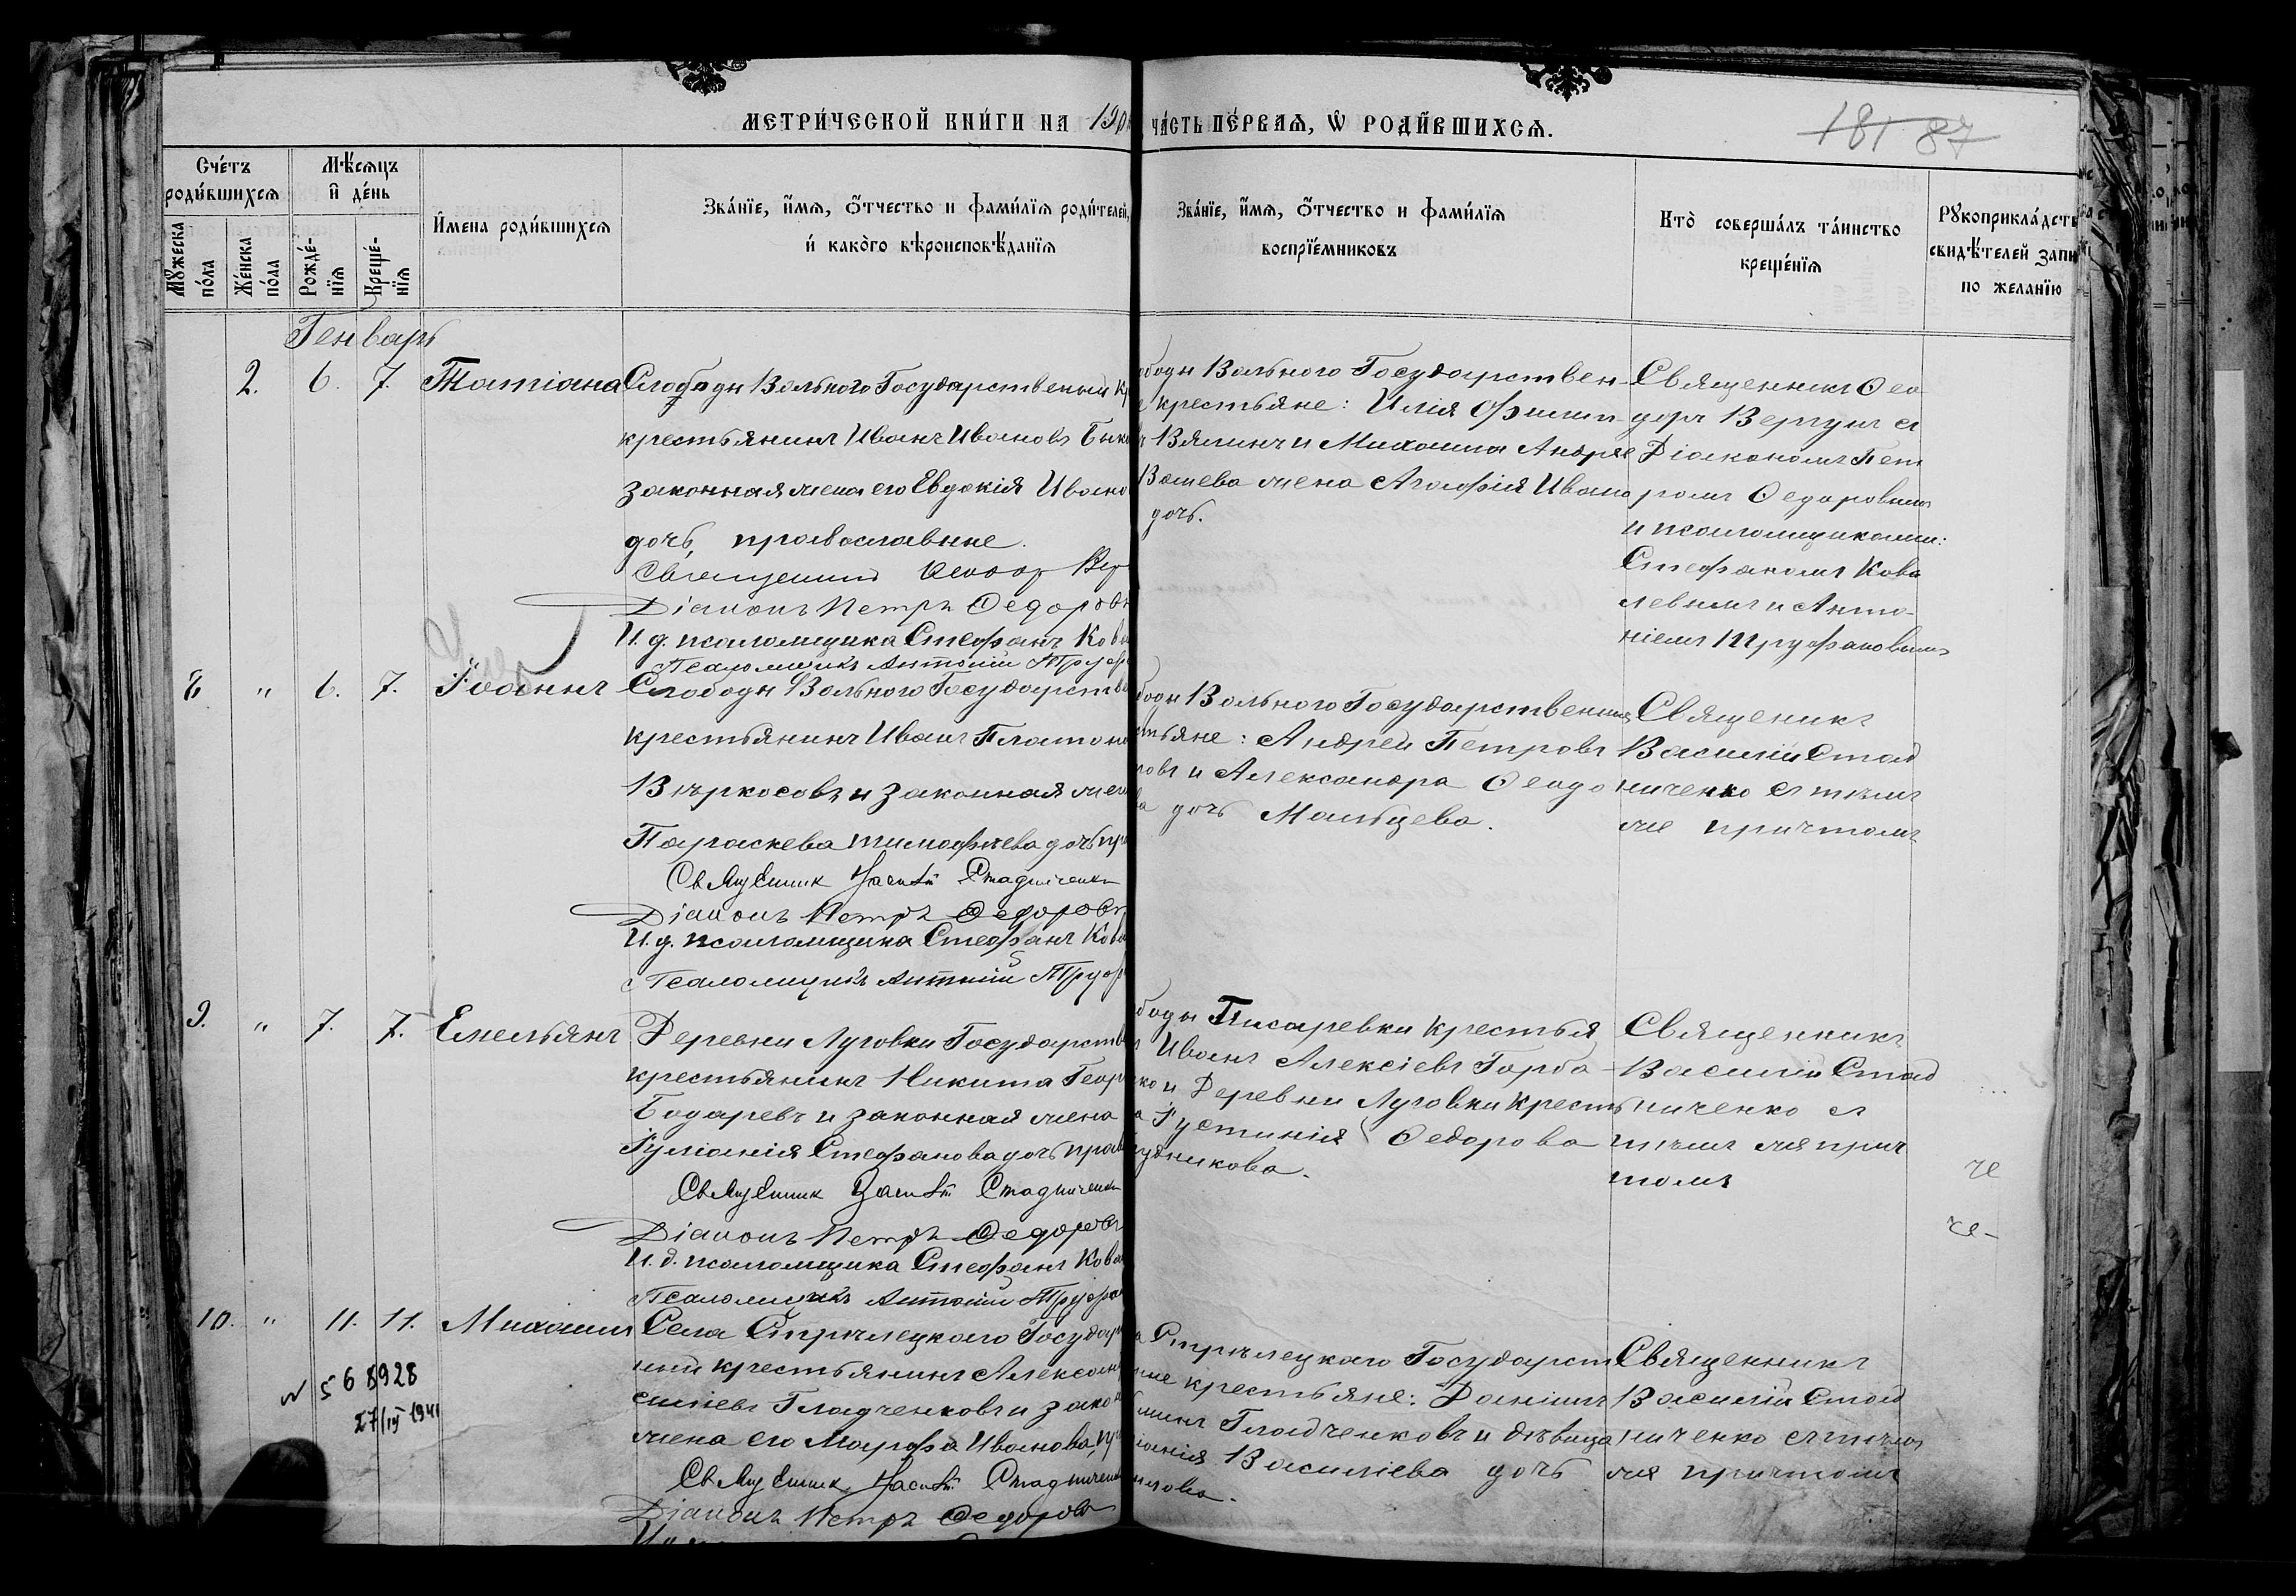 МЕТРИ́ЧЕСКОЙ КНИ́ГИ НА 190
ЧА́СТЬ ПЕ́РВАѦ, Ѡ РОДИ́ВШИХСѦ.
181 87
Сче́тъ
роди́вшихсѧ
Мѣ́сѧцъ
и́ де́нь
Мꙋ́жеска
по́ла
Же́нска
по́ла
Рожде́-
нїѧ
Креще́-
нїѧ
И́мена роди́вшихсѧ
Зва́нїе, и́мѧ, ѻ́тчество и фами́лїѧ роди́телей,
и́ како́го вѣроисповѣ́данїѧ
Зва́нїе, и́мѧ, ѻ́тчество и фами́лїѧ
воспрїе́мниковъ
Кто̀ соверша́лъ та́инство
креще́нїѧ
Рꙋкоприкла́дст
свидѣ́телей запи
по жела́нїю
Генварь
2. 6. 7. Татіана
Слободы Вольного Государственный
крестьянинъ Иванъ Ивановъ
законная жена его Евдокія Ивано
дочь, православные.
Діаконъ Петръ Ѳедоров
И. д. псаломщика Стефанъ Ков
Псаломщикъ Антоній Труф
боды Вольного Государствен-
крестьяне: Илія Филип-
Вялинъ и Михаила Андрее
жена Агафія Ивано
дочь.
Священникъ Ѳео
доръ Вергунъ съ
Діакономъ Пет
ромъ Ѳедоровымъ
и псаломщиками:
Стефаномъ Кова
левымъ и Анто-
ніемъ Труфановымъ
8 " 6. 7. Іоаннъ
Слободы Вольного Государстве
крестьянинъ Иванъ Платоно
и законная жен
Параскева Тимофѣева дочь пр
Священник Василій Стадниченко
Діаконъ Петръ Ѳедоровъ
И. д. псаломщика Стефанъ Кова
Псаломщикъ Антоній Труф
боды Вольного Государственные
стьяне: Андрей Петровъ
ровъ и Александра Ѳеодо
ва дочь Мальцева.
Священикъ
Василій Стад
ниченко съ тѣмъ
же причтомъ
9. " 7. 7. Емельянъ
Деревни Луговки Государстве
крестьянинъ Никита Геор
Бодаревъ и законная жена
Іуліанія Стефанова дочь прав
Священник Василій Стадниченко
Діаконъ Петръ Ѳедоровъ
И. д. псаломщика Стефанъ Кова
Псаломщикъ Антоній Труфа
боды Писаревки крестья
Иванъ Алексіевъ Горба-
ко и Деревни Луговки кресть
Іустинія Ѳедорова
удникова.
Священникъ
Василій Стад
ниченко съ
тѣмъ же прич
томъ
10. " 11. 11. Михаилъ
Села Стрѣлецкаго Государ
ный крестьянинъ Алексан
силіевъ Гладченковъ и закон
жена его Марфа Иванова, пр
Священник Василій Стадниченко
Діаконъ Петръ Ѳедоров
Стрѣлецкаго Государст
ные крестьяне: Даніилъ
Гладченковъ и дѣвица
Василіева дочь
Священникъ
Василій Стад
ниченко съ тѣмъ
же причтомъ
568928
27/IV 1941